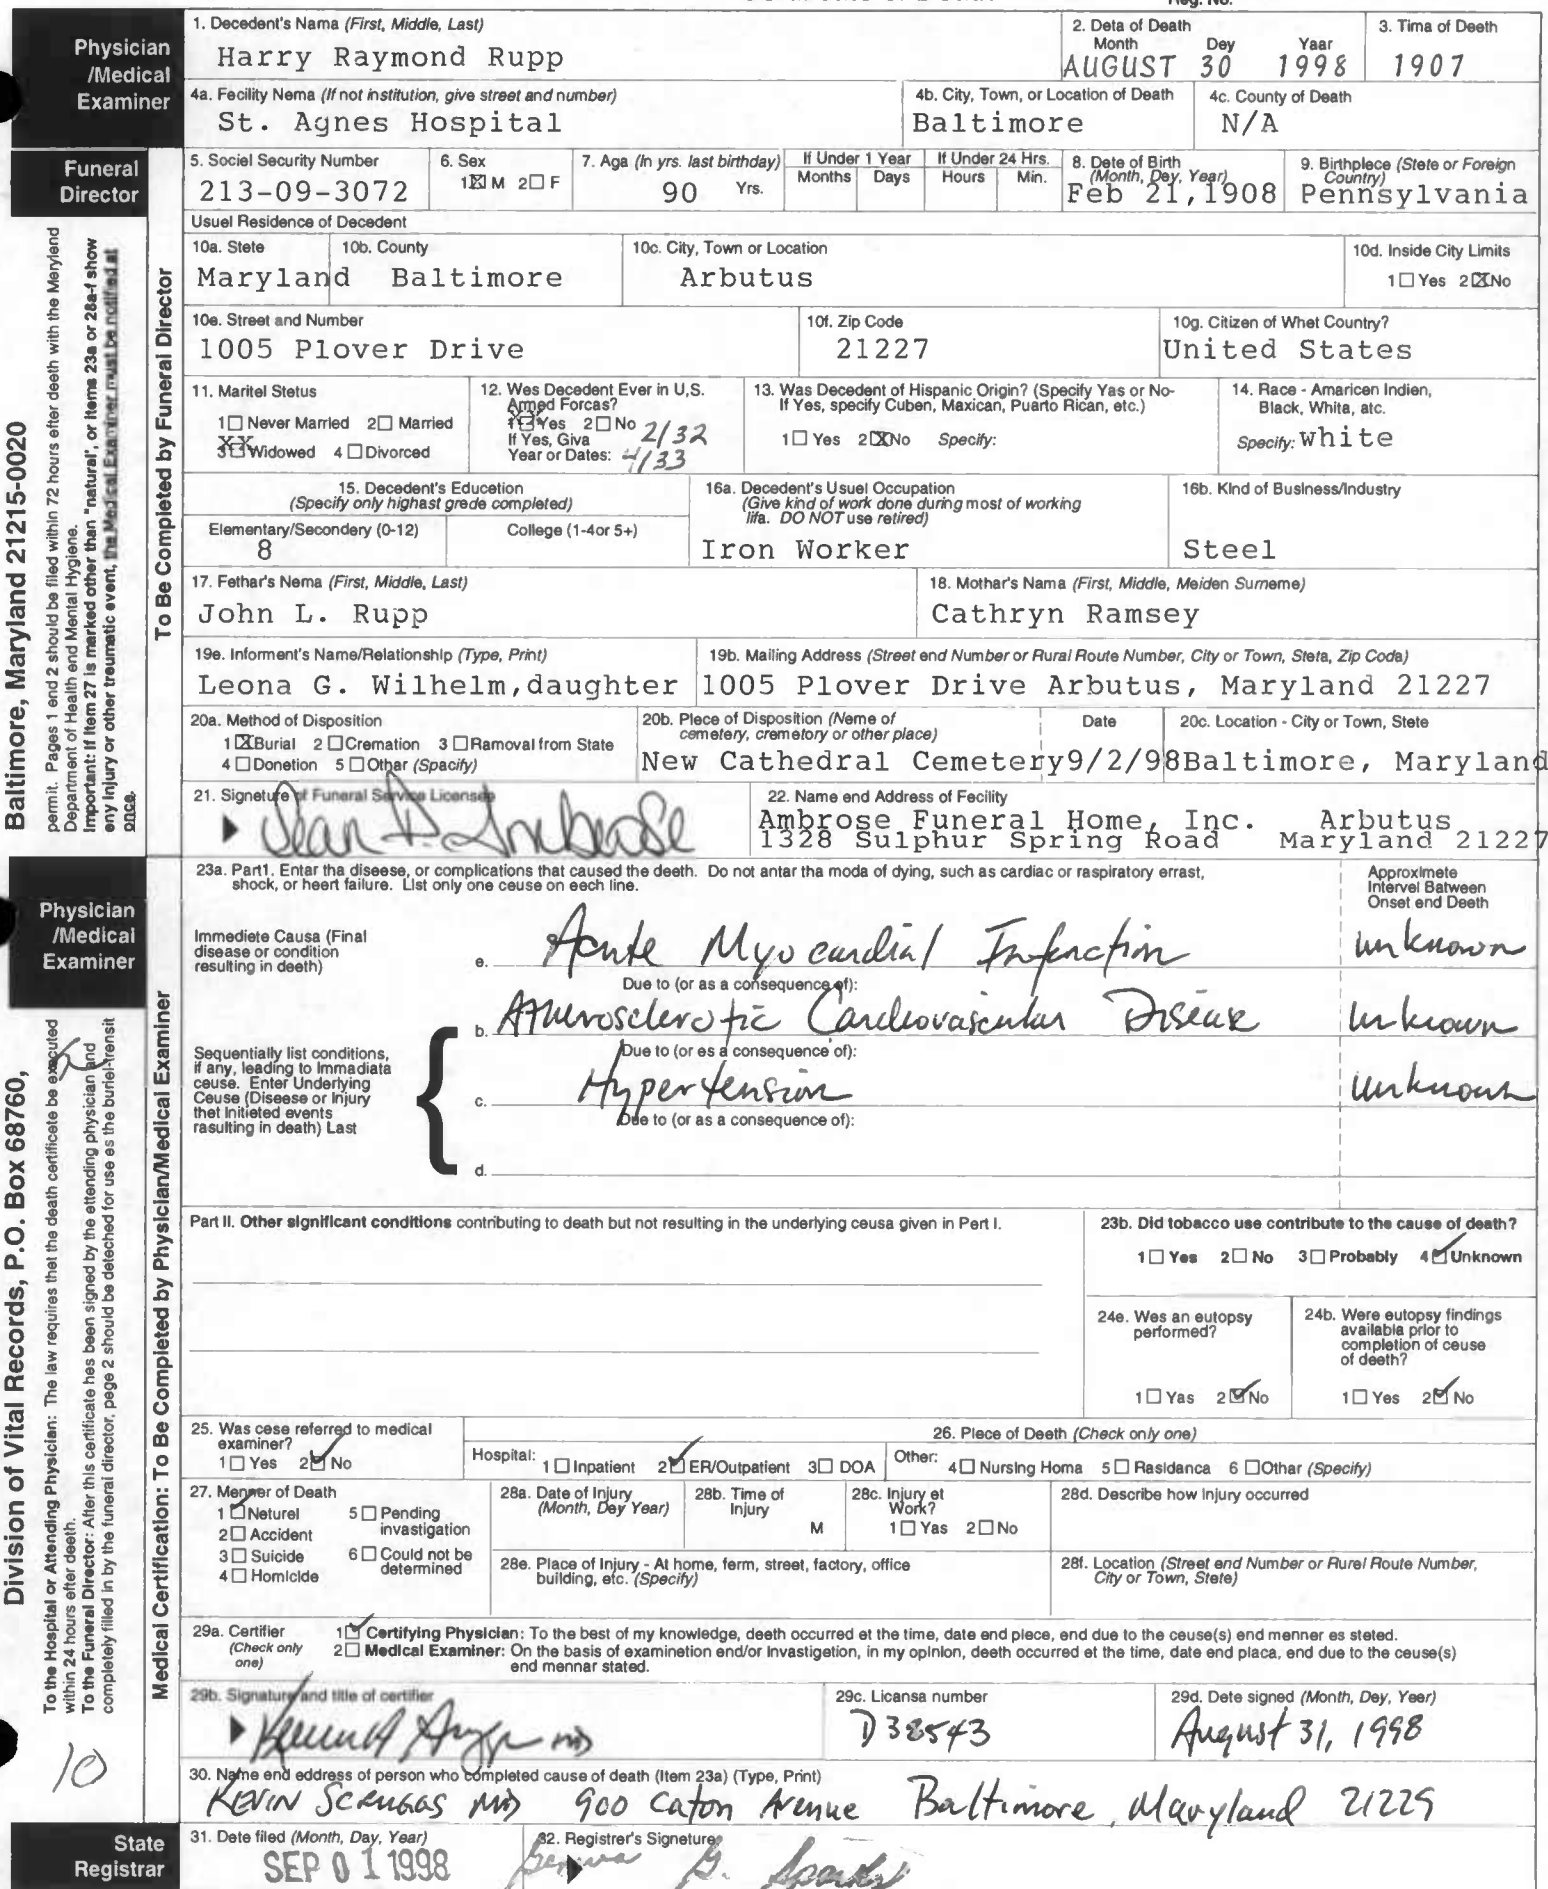 Physician
/Medical
Examiner
1. Decedent's Nama (First, Middle, Last)
Harry Raymond Rupp
2. Deta of Death
Month Dey Yaar
AUGUST 30 1998
3. Tima of Deeth
1907
4a. Fecility Nema (If not institution, give street and number)
St. Agnes Hospital
4b. City, Town, or Location of Death
Baltimore
4c. County of Death
N/A
Funeral
Director
5. Sociel Security Number
213-09-3072
6. Sex
1☒ M 2☐ F
7. Aga (In yrs. last birthday)
90 Yrs.
If Under 1 Year
Months Days
If Under 24 Hrs.
Hours Min.
8. Dete of Birth
(Month, Dey, Year)
Feb 21,1908
9. Birthplece (Stete or Foreign
Country)
Pennsylvania
Usuel Residence of Decedent
10a. Stete
Maryland
10b. County
Baltimore
10c. City, Town or Location
Arbutus
10d. Inside City Limits
1☐ Yes 2☒No
10e. Street and Number
1005 Plover Drive
10f. Zip Code
21227
10g. Citizen of Whet Country?
United States
11. Maritel Stetus
1☐ Never Married 2☐ Married
3☒Widowed 4☐Divorced
12. Wes Decedent Ever in U,S.
Armed Forcas?
1☒Yes 2☐No
If Yes, Giva
Year or Dates:
2/32
4/33
13. Was Decedent of Hispanic Origin? (Specify Yas or No-
If Yes, specify Cuben, Maxican, Puarto Rican, etc.)
1☐ Yes 2☒No Specify:
14. Race - Amaricen Indien,
Black, Whita, atc.
Specify: White
15. Decedent's Educetion
(Specify only highast grede completed)
Elementary/Secondery (0-12)
8
College (1-4or 5+)
16a. Decedent's Usuel Occupation
(Give kind of work done during most of working
lifa. DO NOT use retired)
Iron Worker
16b. Kind of Business/Industry
Steel
17. Fethar's Nema (First, Middle, Last)
John L. Rupp
18. Mothar's Nama (First, Middle, Meiden Surneme)
Cathryn Ramsey
19e. Informent's Name/Relationship (Type, Print)
Leona G. Wilhelm,daughter
19b. Mailing Address (Street end Number or Rural Route Number, City or Town, Steta, Zip Coda)
1005 Plover Drive Arbutus, Maryland 21227
20a. Method of Disposition
1☒Burial 2☐Cremation 3☐Ramoval from State
4☐Donetion 5☐Othar (Spacify)
20b. Plece of Disposition (Neme of
cemetery, cremetory or other place)
New Cathedral Cemetery
Date
9/2/98
20c. Location - City or Town, Stete
Baltimore, Maryland
21. Signeture of Funeral Service Licensee
22. Name end Address of Fecility
Ambrose Funeral Home, Inc. Arbutus
1328 Sulphur Spring Road Maryland 21227
To Be Completed by Funeral Director
Baltimore, Maryland 21215-0020
permit. Pages 1 end 2 should be filed within 72 hours efter deeth with the Merylend
Department of Health end Mental Hygiene.
Important: If Item 27 is marked other than "natural", or Items 23a or 28a-f show
eny Injury or other treumatic event, the Medical Examiner must be notified at
once.
Physician
/Medical
Examiner
23a. Part1. Entar tha diseese, or complications that caused the deeth. Do not antar tha moda of dying, such as cardiac or raspiratory errast,
shock, or heert failure. List only one ceuse on eech line.
Approximete
Intervel Batween
Onset end Deeth
Immediete Causa (Final
disease or condition
resulting in deeth)
e. Acute Myocardial Infarction unknown
Due to (or as a consequence of):
b. Atherosclerotic Cardiovascular Disease unknown
Due to (or es a consequence of):
Sequentially list conditions,
if any, leading to Immadiata
ceuse. Enter Underlying
Ceuse (Diseese or Injury
thet Initieted events
rasulting in death) Last
c. Hypertension unknown
Due to (or as a consequence of):
d.
Part II. Other significant conditions contributing to death but not resulting in the underlying ceusa given in Pert I.
23b. Did tobacco use contribute to the cause of death?
1☐ Yes 2☐ No 3☐ Probably 4☑Unknown
24e. Wes an eutopsy
performed?
1☐ Yas 2☑No
24b. Were eutopsy findings
availabla prior to
completion of ceuse
of deeth?
1☐ Yes 2☑ No
25. Was cese referred to medical
examiner?
1☐ Yes 2☑ No
26. Plece of Deeth (Check only one)
Hospital: 1☐Inpatient 2☑ER/Outpatient 3☐ DOA
Other: 4☐ Nursing Homa 5☐ Rasidanca 6 ☐Othar (Specify)
27. Menner of Death
1☑Neturel
2☐Accident
3☐Suicide
4☐Homicide
5☐Pending
invastigation
6☐Could not be
determined
28a. Date of Injury
(Month, Dey Year)
28b. Time of
Injury
M
28c. Injury et
Work?
1☐ Yas 2☐No
28d. Describe how Injury occurred
28e. Place of Injury - At home, ferm, street, factory, office
building, etc. (Specify)
28f. Location (Street end Number or Rurel Route Number,
City or Town, Stete)
29a. Certifier
(Check only
one)
1☑ Certifying Physician: To the best of my knowledge, deeth occurred et the time, date end plece, end due to the ceuse(s) end menner es steted.
2☐ Medical Examiner: On the basis of examinetion end/or Invastigation, in my opinion, deeth occurred et the time, date end placa, end due to the ceuse(s)
end mennar stated.
29b. Signature and title of certifier
MD
29c. Licansa number
D38543
29d. Dete signed (Month, Day, Yeer)
August 31, 1998
30. Name end eddress of person who completed cause of death (Item 23a) (Type, Print)
KEVIN SCRUGGS MD 900 Caton Avenue Baltimore, Maryland 21229
Medical Certification: To Be Completed by Physician/Medical Examiner
Division of Vital Records, P.O. Box 68760,
To the Hospital or Attending Physician: The law requires thet the death certificete be executed
within 24 hours efter deeth.
To the Funeral Director: After this certificate hes been signed by the ettending physician and
completely filled in by the funeral director, pege 2 should be deteched for use es the buriel-transit
10
State
Registrar
31. Date filed (Month, Day, Year)
SEP 01 1998
32. Registrer's Signeture
G. Sparks